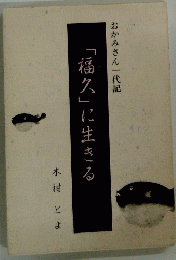 おかみさん一代記
「福久」に生きる
木村 とよ